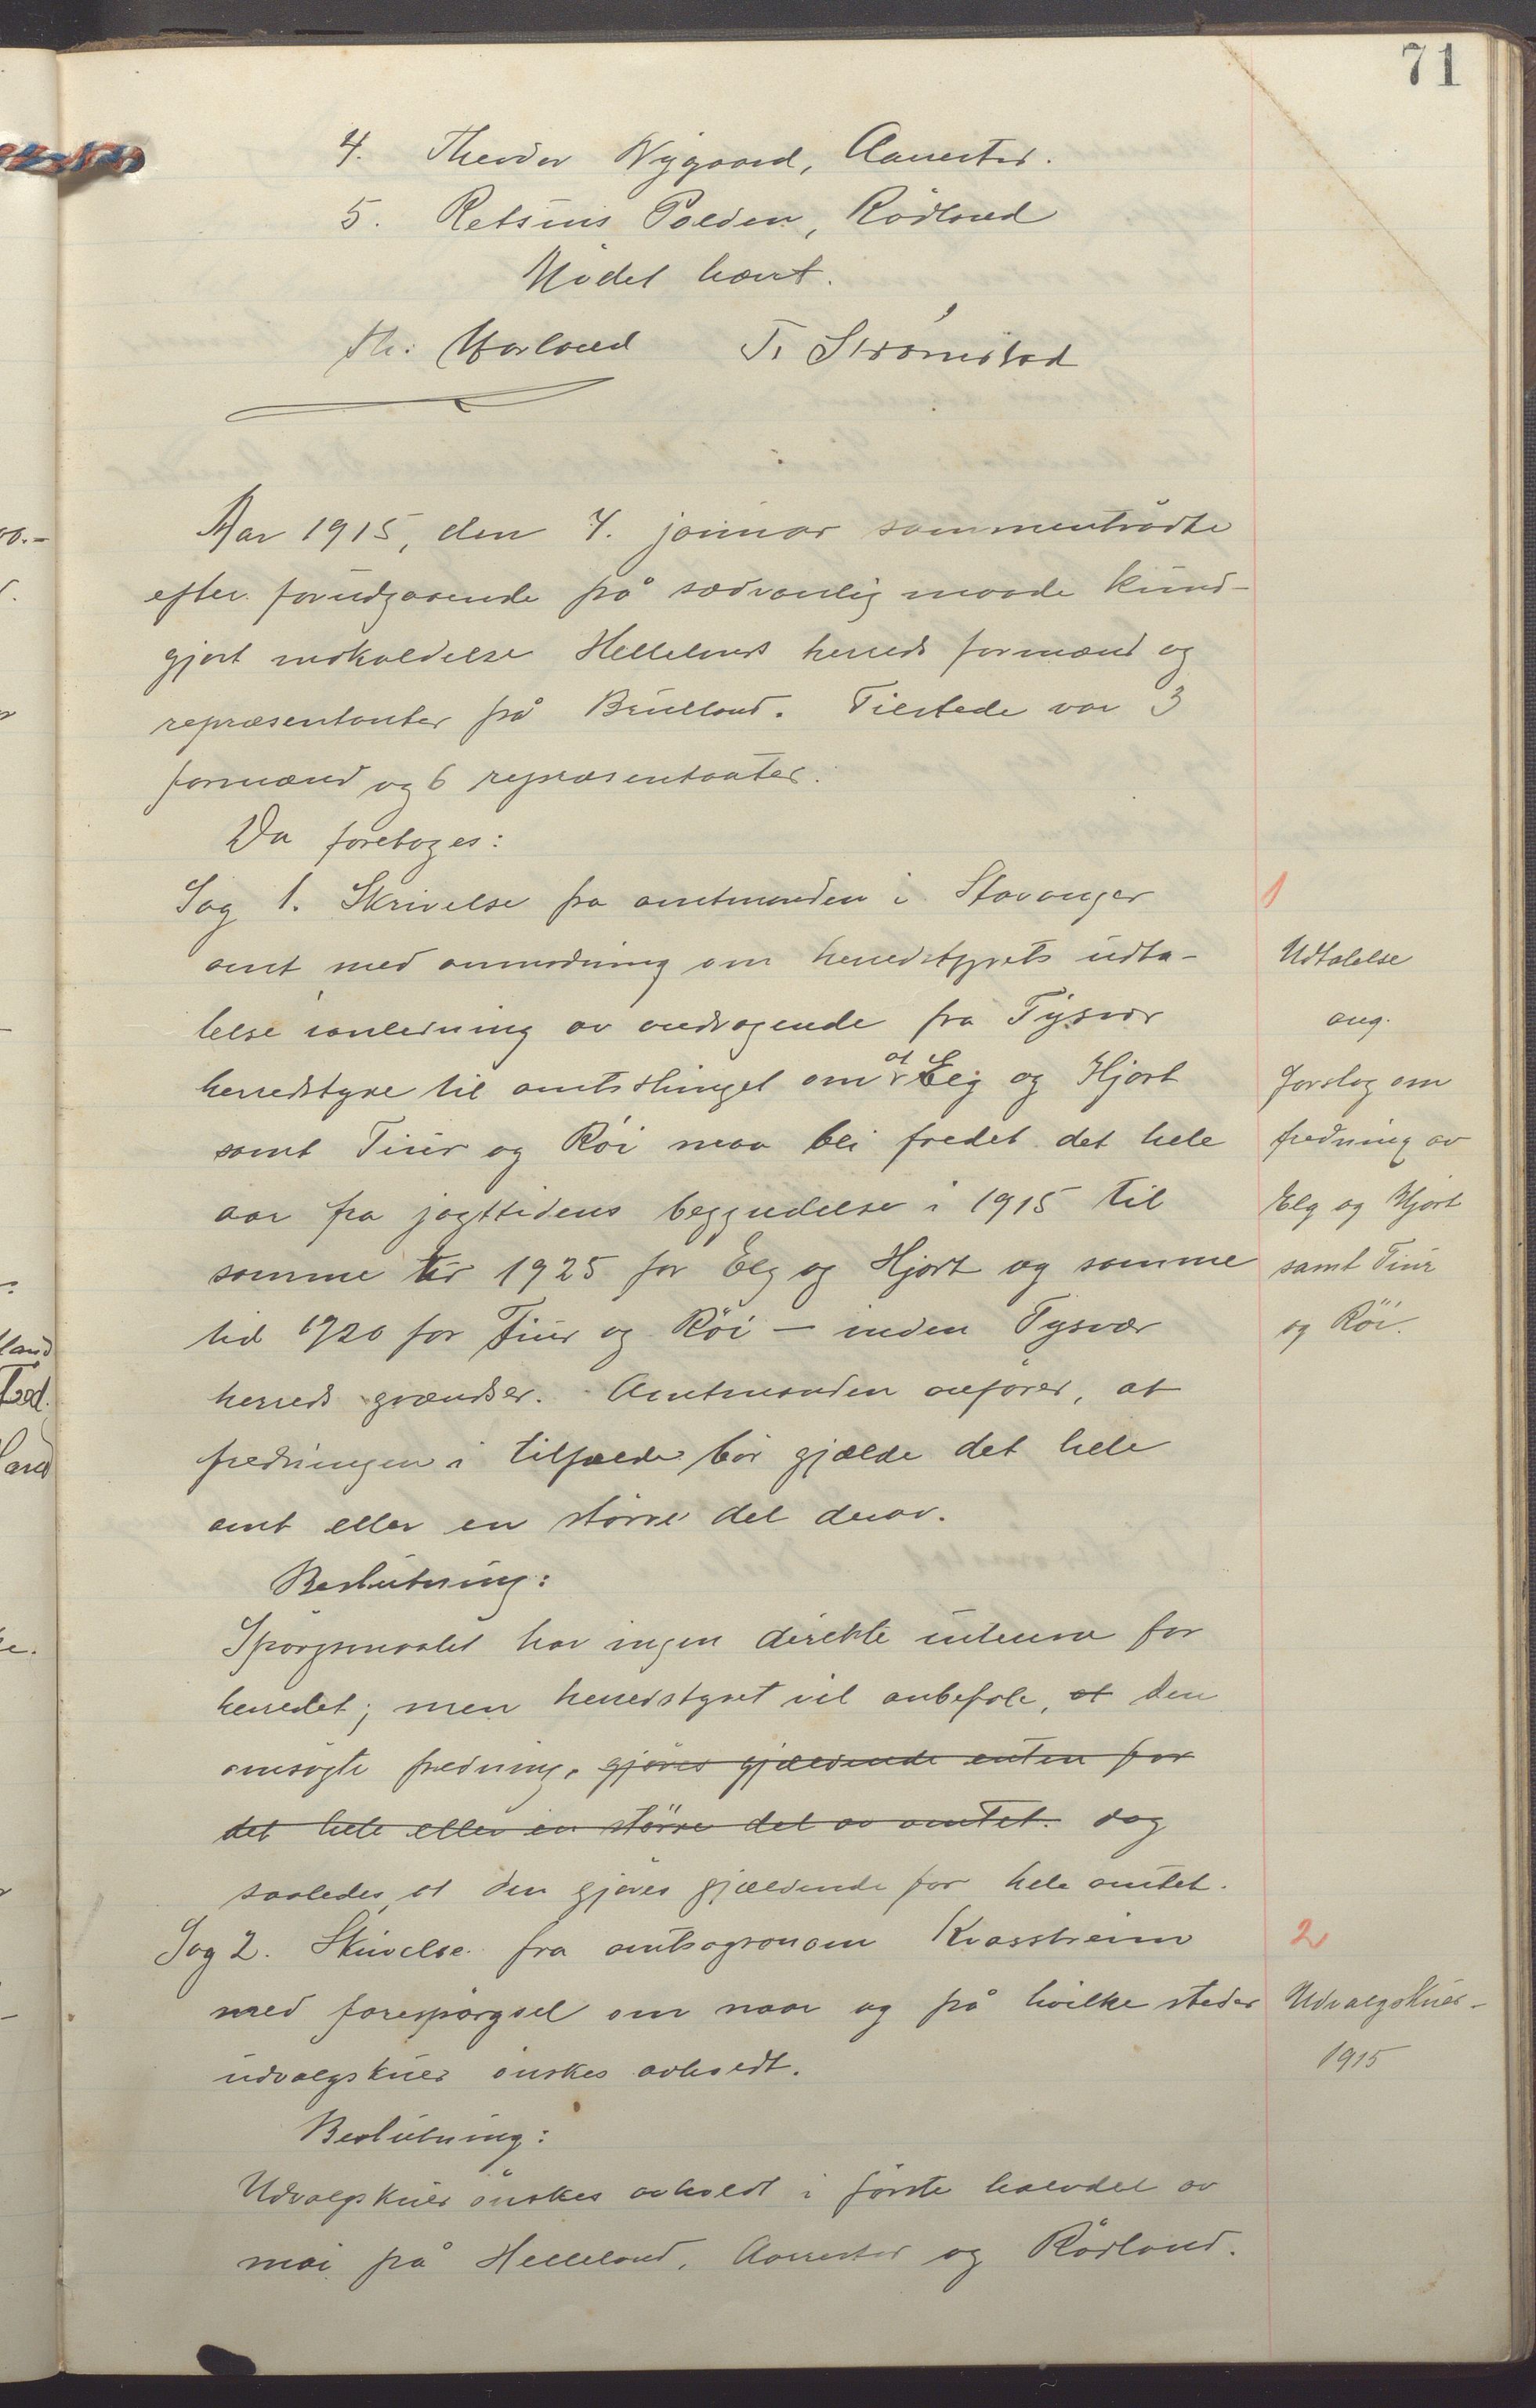 71
4. Theodor Nygaard, Aarrestad.
5. Retsius Polden, Rödland
Mödet hævt.
Th. Korland T. Strömstad
Aar 1915, den 7. januar sammentraadte
efter forudgaaende på sædvanlig maade kund-
gjort indkaldelse Hellelands herreds formænd og
repræsentanter på Bruland. Tilstede var 3
formænd og 6 repræsentanter.
Da foretoges:
Sag 1. Skrivelse fra amtmanden i Stavanger
amt med anmodning om herredstyrets udta-
lelse i anledning av andragende fra Tysvær
herredstyre til amtsthinget om at Elg og Hjort
samt Tiur og Röi maa bli fredet det hele
aar fra jagttidens begyndelse i 1915 til
samme tid 1925 for Elg og Hjort og samme
tid 1920 for Tiur og Röi — inden Tysvær
herreds grændser. Amtmanden anförer, at
fredningen i tilfælde bör gjælde det hele
amt eller en större del derav.
Beslutning:
Spörgsmaalet har ingen direkte interesse for
herredet; men herredstyret vil anbefale, at den
ansögte fredning, gjöres gjældende enten for
det hele eller en större del av amtet. dog
saaledes at den gjöres gjældende for hele amtet.
Sag 2. Skrivelse fra amtsagronom Kvassheim
med forespörgsel om naar og på hvilke steder
udvalgskuer önskes avholdt.
Beslutning:
Udvalgskuer önskes avholdt i förste halvdel av
mai på Helleland, Aarrestad og Rödland.
1
Udtalelse
ang.
forslag om
fredning av
Elg og Hjort
samt Tiur
og Röi.
2
Udvalgskuer-
1915